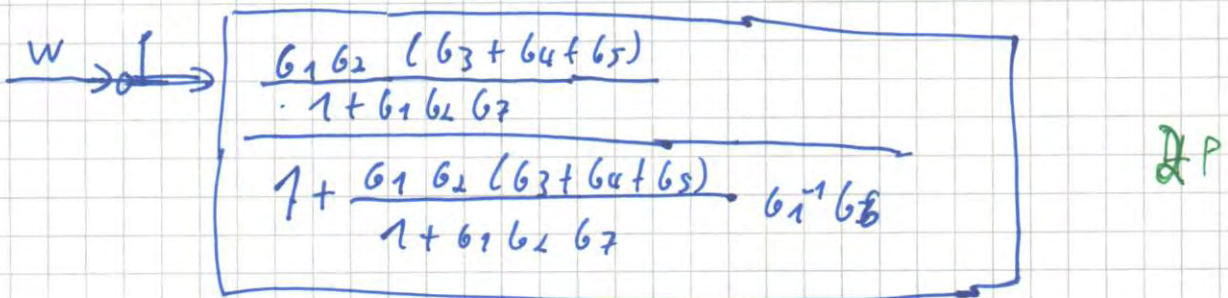 W
G1 G2 (G3 + G4 + G5)
1 + G1 G2 G7
1 + G1 G2 (G3 + G4 + G5) · G1⁻¹ G6
1 + G1 G2 G7
P